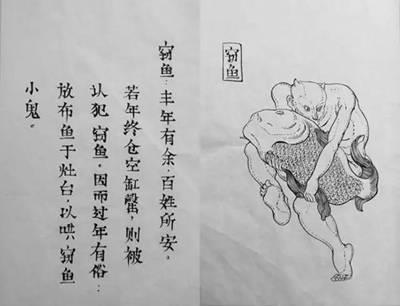 窃鱼
窃鱼：丰年有余，百姓所安。
若年终仓空缸罄，则被
认犯窃鱼。因而过年有俗：
放布鱼于灶台，以哄窃鱼
小鬼。